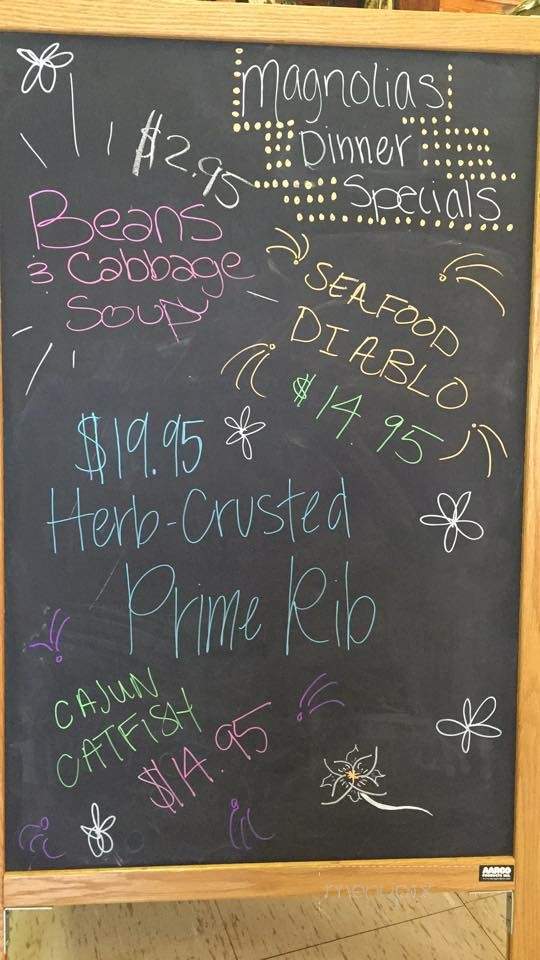 Magnolias
Dinner
Specials
$2.95
Beans
& Cabbage
Soup
SEAFOOD
DIABLO
$14.95
$19.95
Herb-Crusted
Prime Rib
CAJUN
CATFISH
$14.95
AARCO
menupix